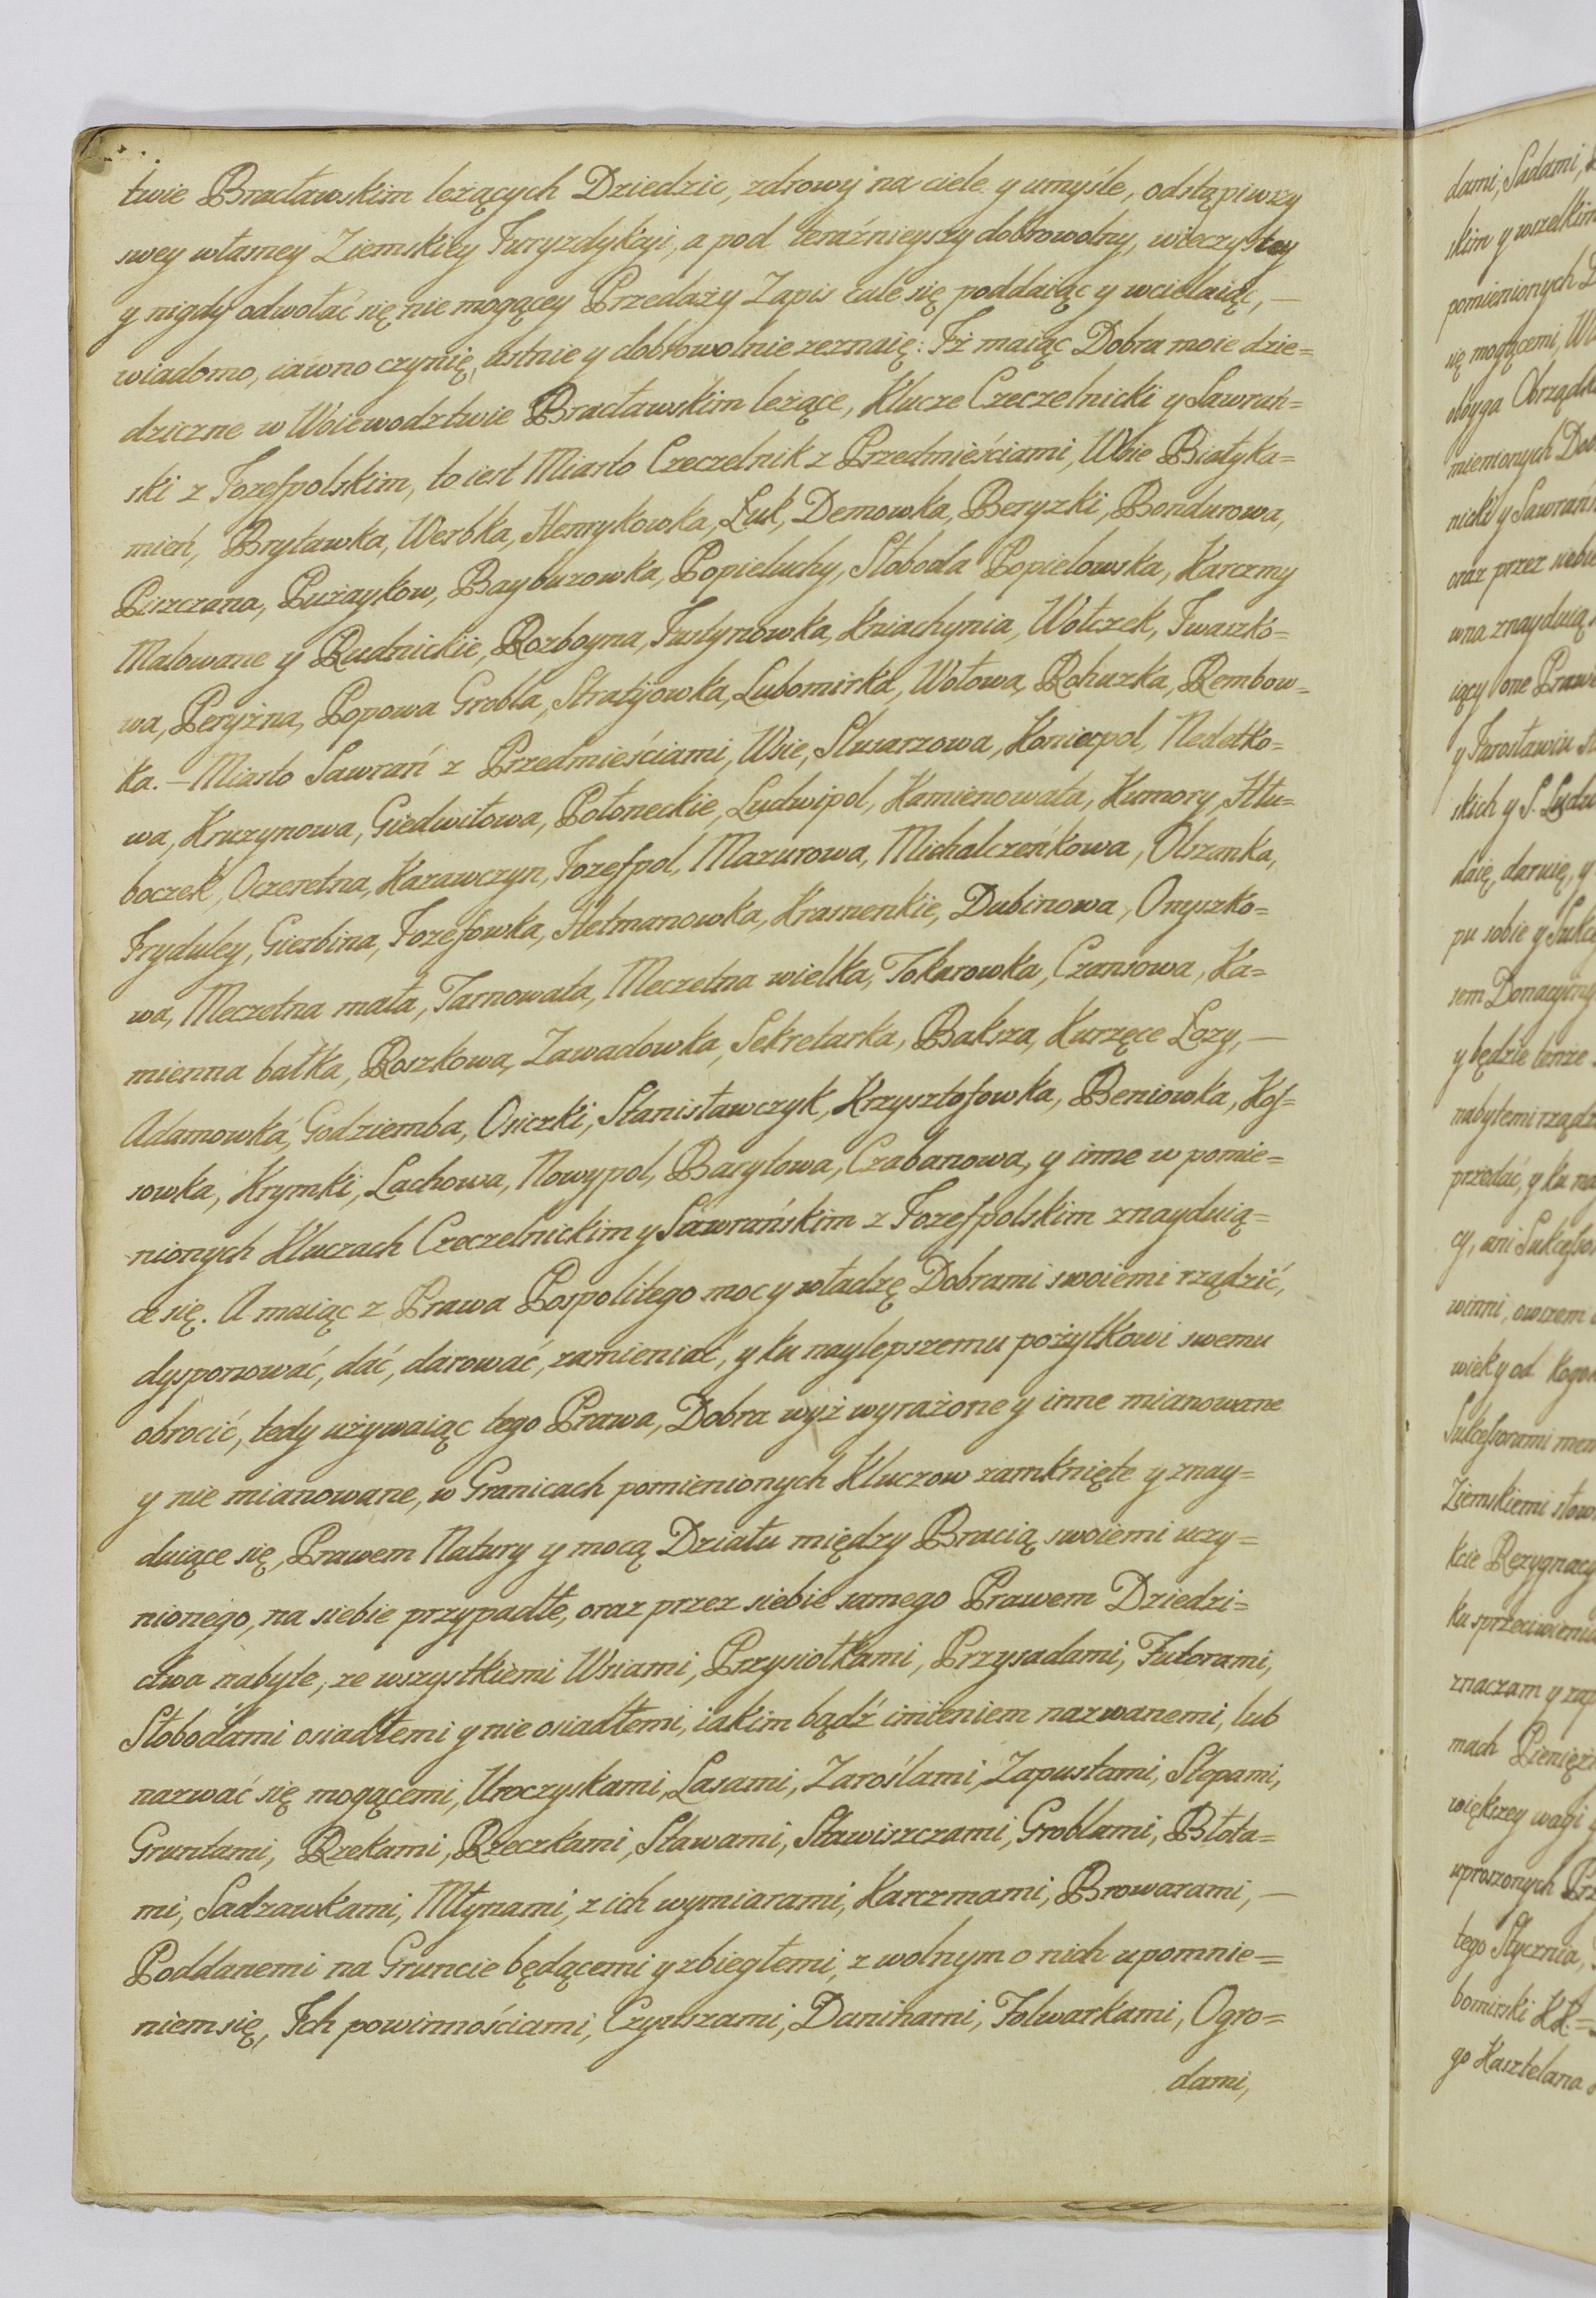 twie Bracławskim leżących Dziedzic, zdrowy na ciele y umyśle, odstąpiwszy
swey własney Ziemskiey Juryzdykcyi, a pod teraźnieyszy dobrowolny, wieczystey
y nigdy odwołać się nie mogącey Przedaży Zapis cale się poddaiąc y wcielaiąc, —
wiadomo, iawno czynię, ustnie y dobrowolnie zeznaię: Iż maiąc Dobra moie dzie=
dziczne w Woiewodztwie Bracławskim leżące, Klucze Czeczelnicki y Sawrań=
ski z Jozefpolskim, to iest Miasto Czeczelnik z Przedmieściami, Wsie Białyka=
mień, Brytawka, Werbka, Henrykowka, Łuk, Demowka, Beryzki, Bondurowa,
Piszczana, Pużaykow, Bayburowka, Popieluchy, Słoboda Popielowska, Karczmy
Malowane y Rudnickie, Rozboyna, Justynowka, Kniachynia, Wołczek, Iwaszko=
wa, Peryżna, Popowa Grobla, Stratyjowka, Lubomirka, Wołowa, Rohuzka, Rembow=
ka. — Miasto Sawrań z Przedmieściami, Wsie, Slusarzowa, Koniecpol, Nedełko=
wa, Kruzynowa, Giedwiłowa, Połoneckie, Ludwipol, Kamienowata, Kumory, Hłu=
boczek, Oczeretna, Kazawczyn, Jozefpol, Mazurowa, Michalczeńkowa, Olszanka,
Fryduley, Gierbina, Jozefowka, Hetmanowka, Krasnenkie, Dubinowa, Onyszko=
wa, Meczetna mała, Tarnowata, Meczetna wielka, Tokarowka, Czansowa, Ka=
mienna bałka, Roszkowa, Zawadowka, Sekretarka, Baksza, Kurzęce Łozy, —
Adamowka, Godziemba, Osiczki, Stanisławczyk, Krzysztofowka, Beniowka, Kos=
sowka, Krymki, Lachowa, Nowypol, Baryłowa, Czabanowa, y inne w pomie=
nionych Kluczach Czeczelnickim y Sawrańskim z Jozefpolskim znayduią=
ce się. A maiąc z Prawa Pospolitego moc y władzę Dobrami swoiemi rządzić,
dysponować, dać, darować, zamieniać, y ku naylepszemu pożytkowi swemu
obrocić, tedy używaiąc tego Prawa, Dobra wyż wyrażone y inne mianowane
y nie mianowane, w Granicach pomienionych Kluczow zamknięte y znay=
duiące się, Prawem Natury y mocą Działu między Bracią swoiemi uczy=
nionego, na siebie przypadłe, oraz przez siebie samego Prawem Dziedzi=
ctwa nabyte, ze wszystkiemi Wsiami, Przysiołkami, Przysadami, Futorami,
Słobodami osiadłemi y nie osiadłemi, iakim bądź imieniem nazwanemi, lub
nazwać się mogącemi, Uroczyskami, Lasami, Zaroślami, Zapustami, Stepami,
Gruntami, Rzekami, Rzeczkami, Stawami, Stawiszczami, Groblami, Błota=
mi, Sadzawkami, Młynami, z ich wymiarami, Karczmami, Browarami, —
Poddanemi na Gruncie będącemi y zbiegłemi, z wolnym o nich upomnie=
niem się, Ich powinnościami, Czynszami, Daninami, Folwarkami, Ogro=
dami,
dami, Sadami,
skim y wszelkim
pomienionych
się mogącemi,
oboyga Obrządku
mienionych
nicki y Sawrań
oraz przez siebie
wna znayduią
iący one
y Jarosławiu
skich y S.
daię, daruię, y
pu sobie y
sem
y będzie tenże
nabytemi
przedać, y ku
cy, ani
winni, owszem
wiek y od
Sukcessorami
Ziemskiemi
kcie
ku
znaczam y
mach
większey wagi
uproszonych
tego Stycznia,
bomirski
go Kasztelana